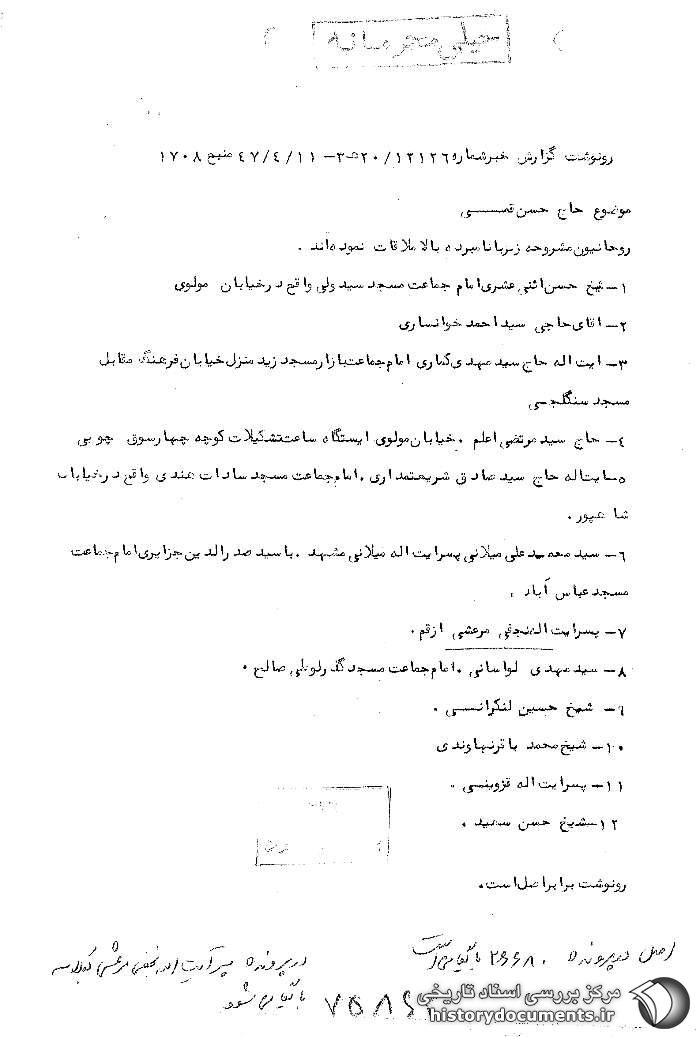 خیلی محرمانه
رونوشت گزارش خبرشماره ۲۰/۱۲۱۲۶ه‍ ۳ – ۴۷/۴/۱۱ منبع ۱۷۰۸
موضوع حاج حسن قمی
روحانیون مشروحه زیر با نامبرده بالا ملاقات نموده‌اند .
۱– شیخ حسن اثنی عشری امام جماعت مسجد سید ولی واقع در خیابان مولوی
۲– اقای حاجی سید احمد خوانساری
۳– ایت اله حاج سید مهدی کماری امام جماعت بازار مسجد زید منزل خیابان فرهنگ مقابل
مسجد سنگلجی
۴– حاج سید مرتضی اعلم . خیابان مولوی ایستگاه ساعت تشکیلات کوچه چهارسوق چوبی
۵– ایت اله حاج سید صادق شریعتمداری . امام جماعت مسجد سادات هندی واقع در خیابان
شاهپور .
۶– سید محمد علی میلانی پسر ایت اله میلانی مشهد . با سید صدرالدین جزایری امام جماعت
مسجد عباس آباد .
۷– پسر ایت اله نجفی مرعشی از قم .
۸– سید مهدی لواسانی . امام جماعت مسجد گذر لوطی صالح .
۹– شیخ حسین لنکرانی .
۱۰– شیخ محمد باقر نهاوندی
۱۱– پسر ایت اله قزوینی .
۱۲– شیخ حسن سعید .
رونوشت برابر اصل است .
اصل در پرونده ۲۶۶۸۰ بایگانی است
در پرونده پسر آیت اله نجفی مرعشی کلاسه
بایگانی شود
مرکز بررسی اسناد تاریخی
historydocuments.ir